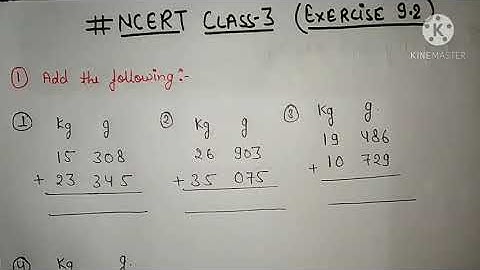 # NCERT CLASS-3 (EXERCISE 9.2)
K
KINEMASTER
① Add the following:-
① Kg g
15 308
+ 23 345
② Kg g
26 903
+ 35 075
③ Kg g.
19 486
+ 10 729
④ Kg g.